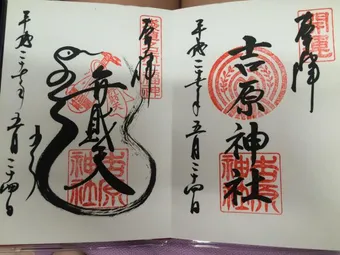 開運
奉拝
吉原神社
吉原神社
平成二十五年五月二十四日
奉拝
弁財天
吉原神社
平成二十五年五月二十四日